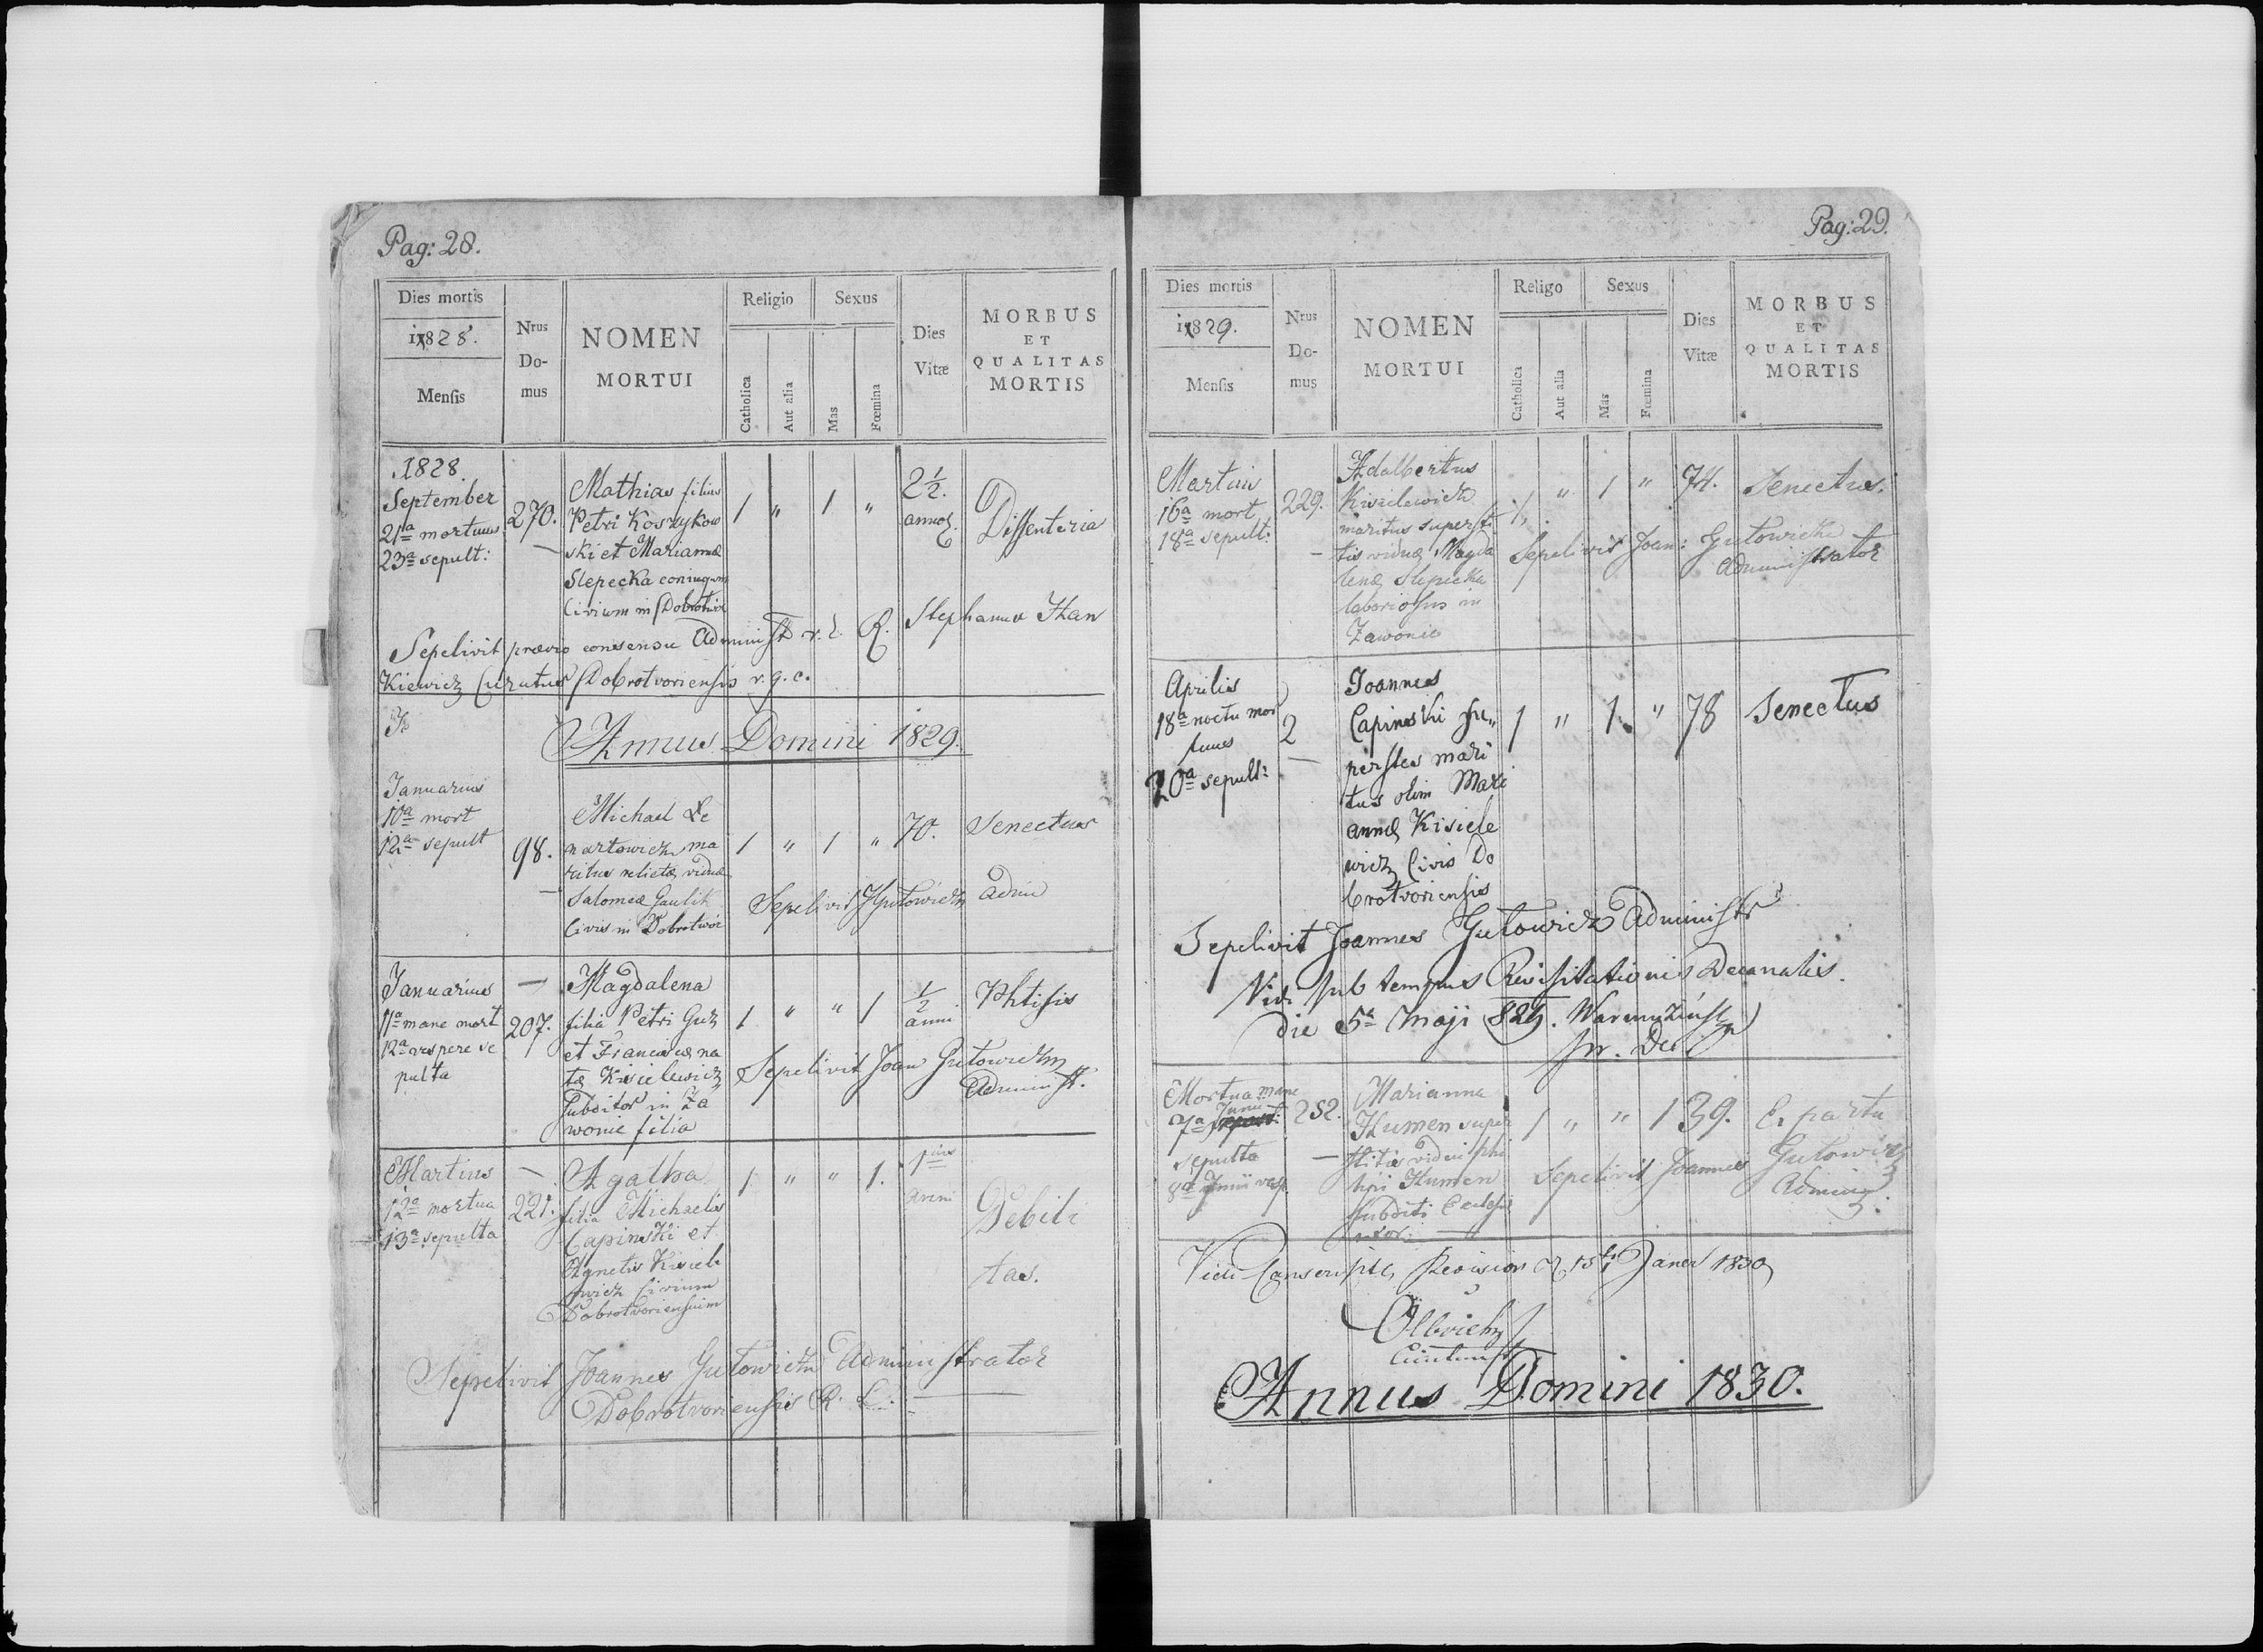 Pag: 28.
Dies mortis
1828.
Mensis
Nrus
Do-
mus
NOMEN
MORTUI
Religio
Catholica
Aut alia
Sexus
Mas
Fœmina
Dies
Vitæ
MORBUS
ET
QUALITAS
MORTIS
1828.
September
21a mortuus
23a sepult:
270.
Mathias filius
Petri Koszykow
ski et Marianna
Slepecka coniugum
Civium in Dobrotwor
1 " 1 "
2 1/2.
annor.
Dissenteria
Sepelivit prævio consensu Administ r. l. R. Stephanus Han
Kiewicz Curatus Dobrotvoriensis r. g. c.
Annus Domini 1829.
Januarius
10a mort
12a sepult
98.
Michael Le
nartowicz ma
ritus relictæ viduæ
Salomeæ Gaulik
Civis in Dobrotwor
1 " 1 "
70.
Senectus
Sepelivit JGutowicz Adm
Januarius
11a mane mort
12a vespere se
pulta
207.
Magdalena
filia Petri Guz
et Franciscæ na
tæ Kisielewicz
Subditor in Za
wonie filia
1 " " 1
1/2
anni
Phtisis
Sepelivit Joan Gutowicz
Administ.
Martius
12a mortua
13a sepulta
221.
Agatha
filia Michaelis
Capinski et
Agnetis Kisiele
wicz Civium
Dobrotvoriensium
1 " " 1.
1ius
anni
Debili
tas.
Sepelivit Joannes Gutowicz Administrator
Dobrotvoriensis R. L.
Pag: 29.
Dies mortis
1829.
Mensis
Nrus
Do-
mus
NOMEN
MORTUI
Religo
Catholica
Aut alia
Sexus
Mas
Fœmina
Dies
Vitæ
MORBUS
ET
QUALITAS
MORTIS
Martius
16a mort
18a sepult:
229.
Adalbertus
Kisielewicz
maritus supersti
tis viduæ Magda
lenæ Slepecka
laboriosus in
Zawonie
1 " 1 "
74.
Senectus.
Sepelivit Joan: Gutowicz
Administrator
Aprilis
18a noctu mor
tuus
20a sepult:
2
Joannes
Capinski su„
perstes mari
tus olim Mari
annæ Kisiele
wicz Civis Do
brotvoriensis
1 " 1 "
78
Senectus
Sepelivit Joannes Gutowicz Administr
Vidi sub tempus Revisitationis Decanalis.
die 5a Maji 829.
Mortua mane
7a Junii
sepulta
8a Junii vesp.
252.
Marianna
Humen super
stitis vidui
Humen
subditi
uxor.
1 " " 1
39.
Ex partu
Sepelivit Joannes Gutowicz
Administ.
Vidi
1830
Annus Domini 1830.